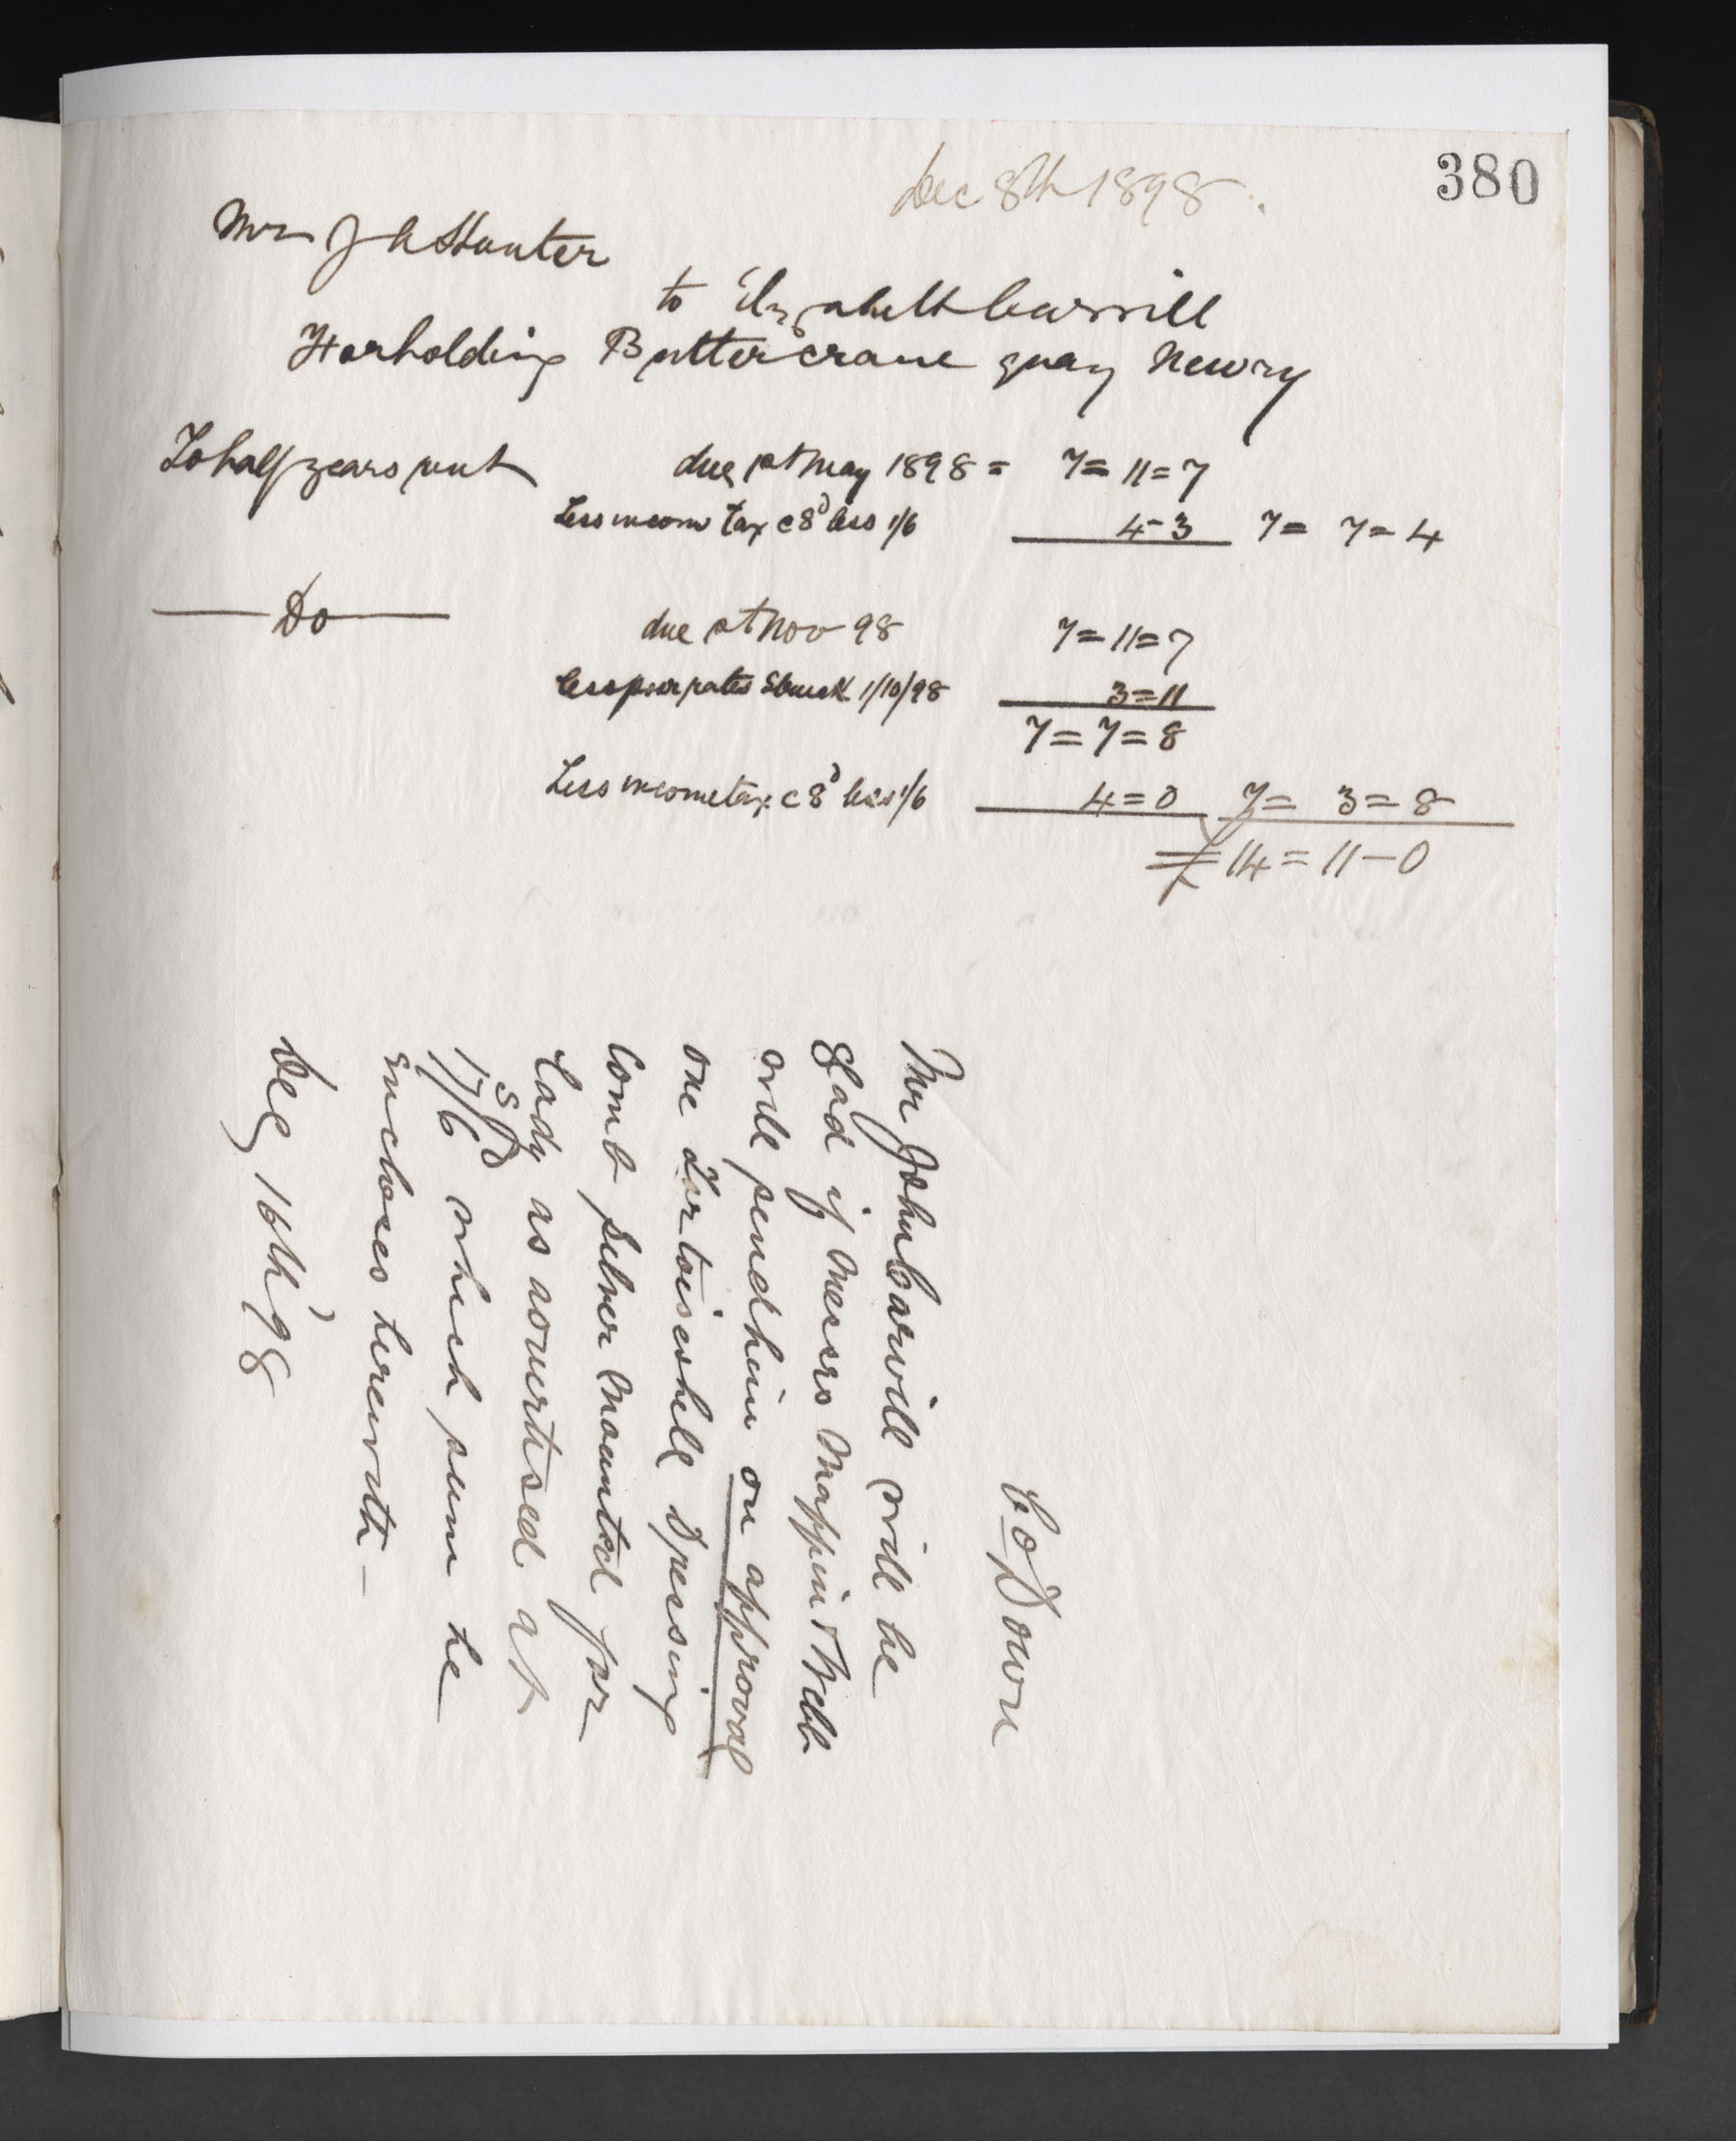 380
Dec 8th 1898.
Mr J A Hunter
to Elizabeth Carvill
For holding Buttercrane quay Newry
To half years rent due 1st May 1898 = 7 = 11 = 7
Less income tax @ 8d less 1/6 4-3 7 = 7 = 4
Do due 1st Nov 98 7 = 11 = 7
Less poor rates struck 1/10/98 3 = 11
7 = 7 = 8
Less income tax @ 8d less 1/6 4 = 0 7 = 3 = 8
£ 14 = 11 - 0
Co Down
Mr John Carvill will be
glad if Messrs Mappin & Webb
will send him on approval
one Tortoiseshell Dressing
Comb silver mounted for
Lady as advertised at
17s/6D which sum he
encloses herewith -
Dec 16th '98